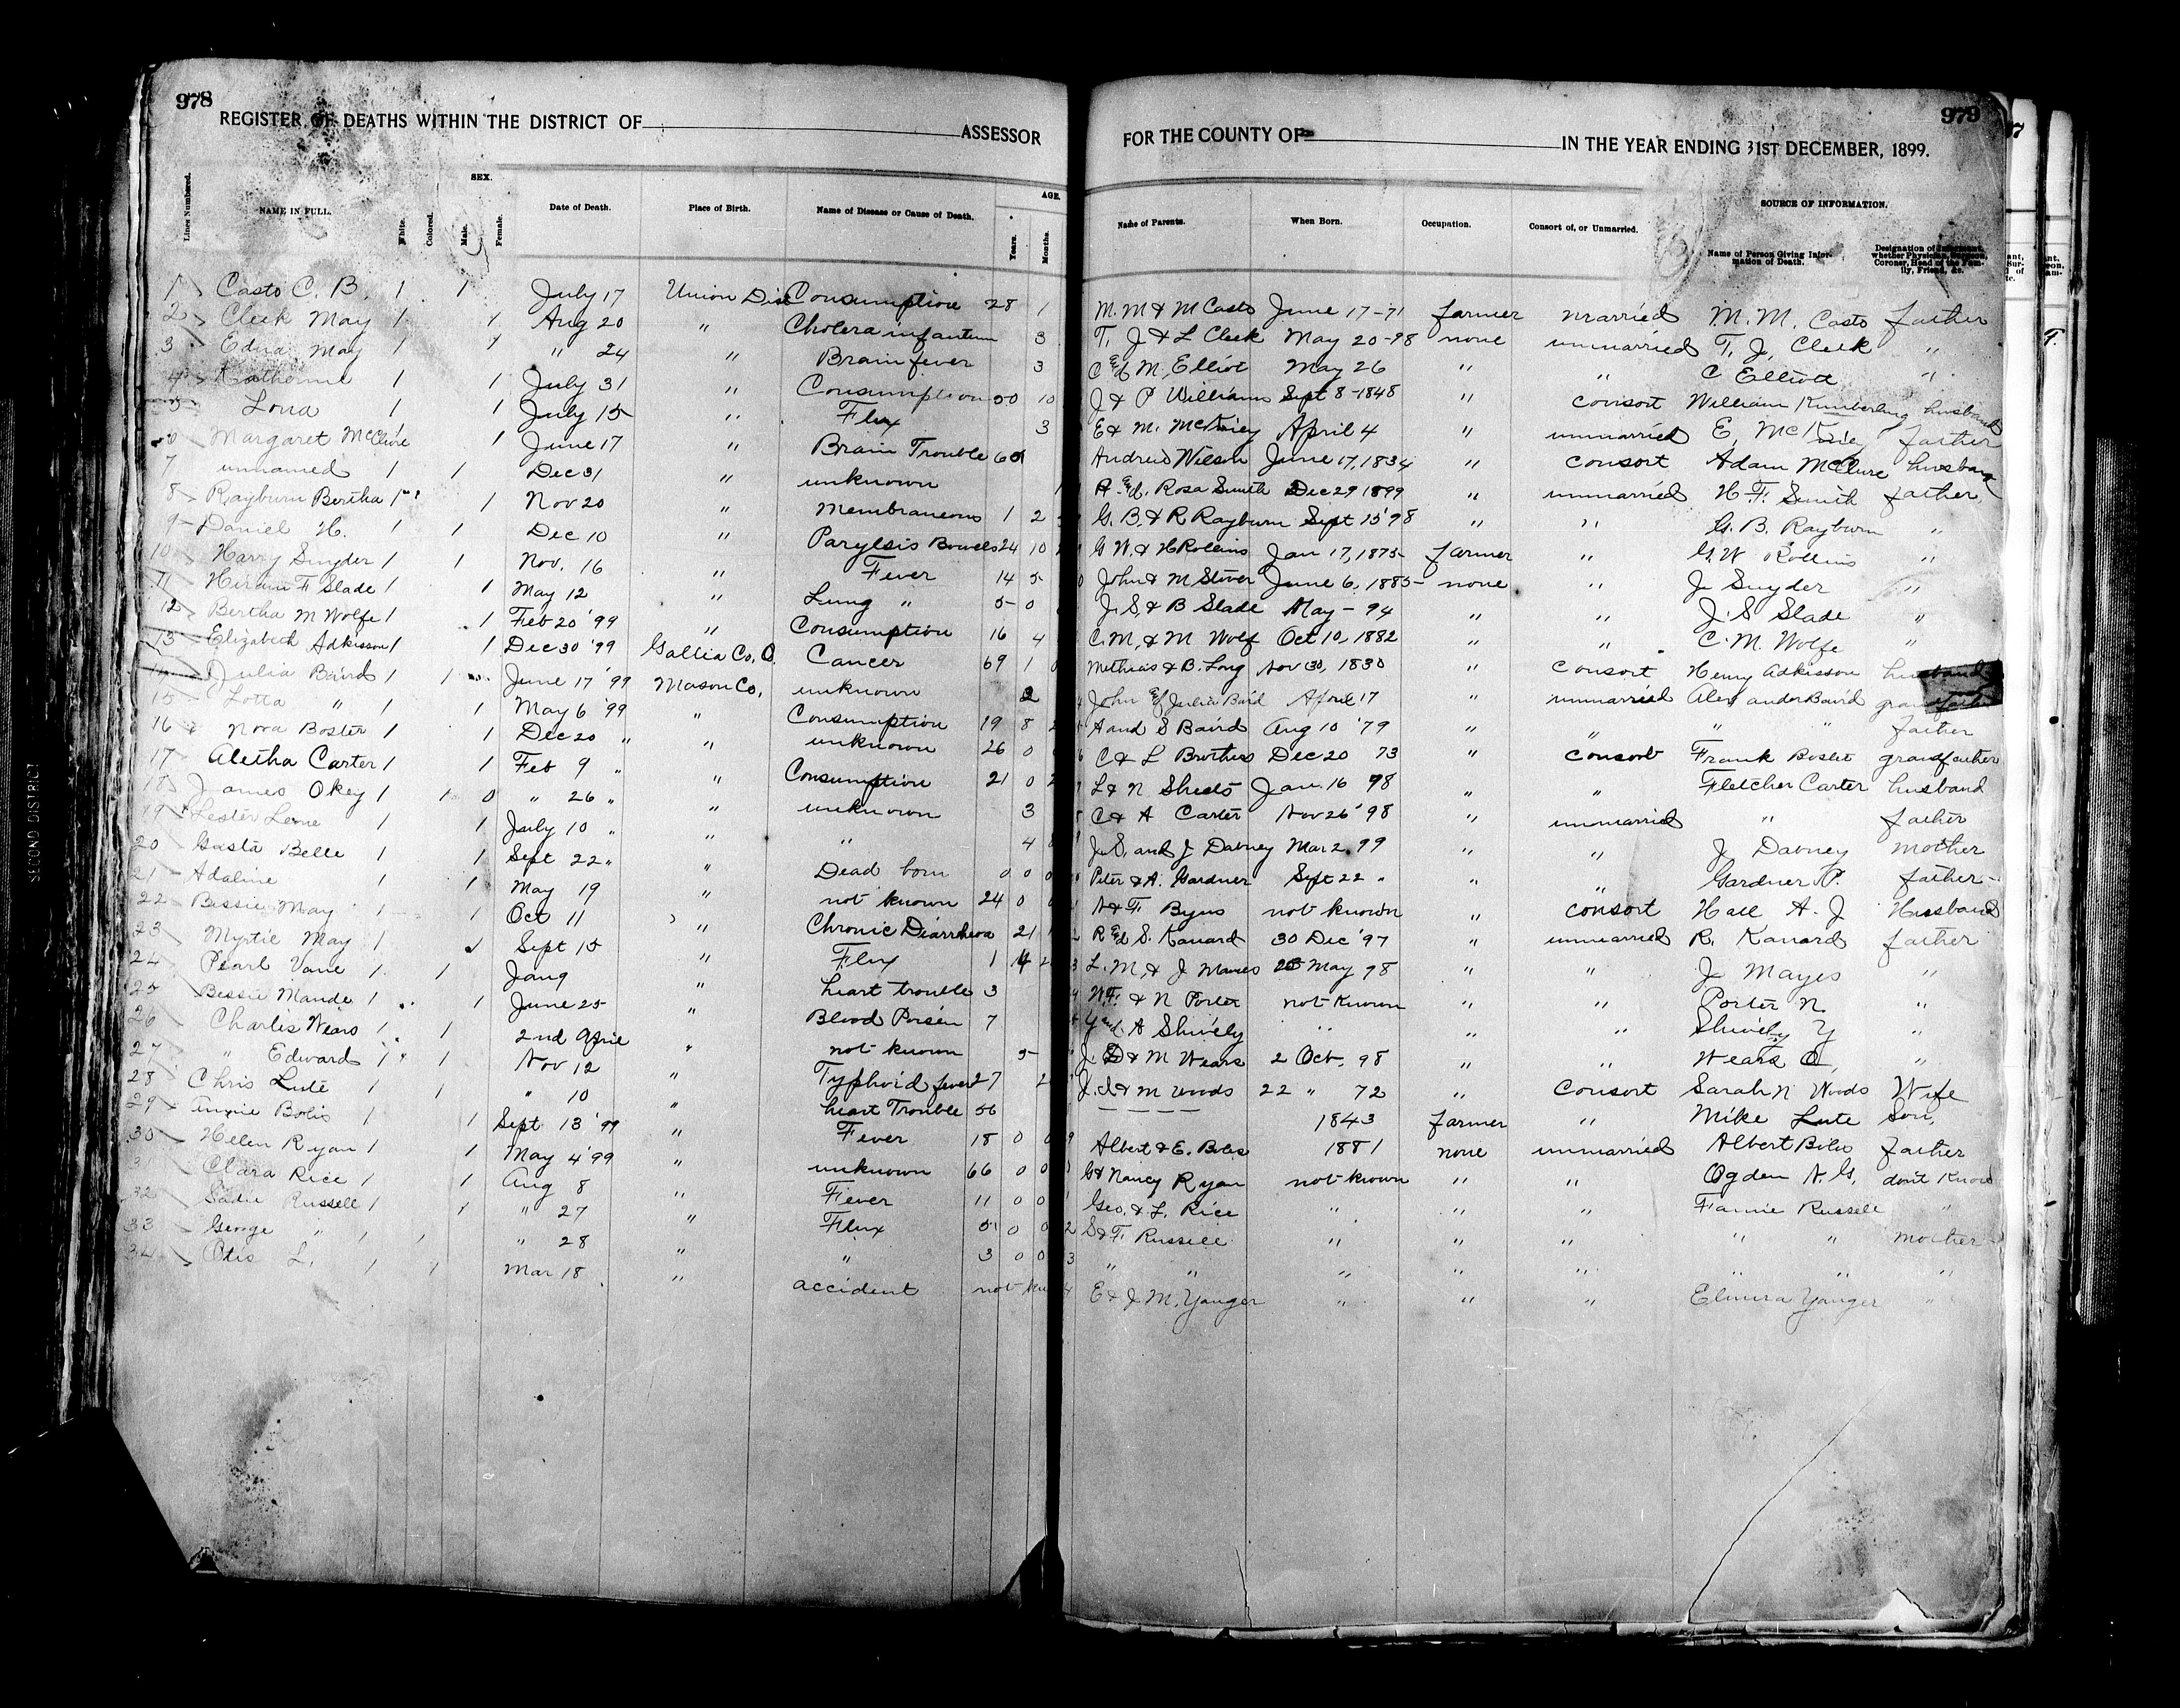 978
REGISTER OF DEATHS WITHIN THE DISTRICT OF ASSESSOR
Lines Numbered. NAME IN FULL. White. Colored. SEX. Male. Female. Date of Death. Place of Birth. Name of Disease or Cause of Death. AGE. Years. Months.
1 Casto C. B. 1 1 July 17 Union Dist Consumption 28 1
2 Cleek May 1 1 Aug 20 " Cholera infantum 3
3 Edna May 1 1 " 24 " Brain fever 3
4 Katherine 1 1 July 31 " Consumption 50 10
5 Lona 1 1 July 15 " Flux 3
6 Margaret McClure 1 June 17 " Brain Trouble
7 unnamed 1 1 Dec 31 " unknown
8 Rayburn Bertha 1 1 Nov 20 " Membraneous 1 2
9 Daniel H. 1 1 Dec 10 " Parylsis Bowels 24 10
10 Harry Snyder 1 1 Nov. 16 " Fever 14 5
11 Hiram F Slade 1 1 May 12 " Lung " 5 0
12 Bertha M Wolfe 1 1 Feb 20 '99 " Consumption 16 4
13 Elizabeth Adkisson 1 1 Dec 30 '99 Gallia Co, O. Cancer 69 1
14 Julia Baird 1 1 June 17 '99 Mason Co, unknown 2
15 Lotta " 1 1 May 6 '99 " Consumption 19 8
16 Nora Boster 1 1 Dec 20 " " unknown 26 0
17 Aletha Carter 1 1 Feb 9 " " Consumption 21 0
18 James Okey 1 1 0 " 26 " " unknown 3
19 Lester Leone 1 1 July 10 " " " 4
20 Gusta Belle 1 1 Sept 22 " " Dead born 0 0
21 Adaline 1 1 May 19 " not known 24 0
22 Bessie May 1 1 Oct 11 " Chronic Diarrhea 21
23 Myrtie May 1 1 Sept 15 " Flux 1 4
24 Pearl Vane 1 1 " heart trouble 3
25 Bessie Maude 1 1 June 25 " Blood Poisen 7
26 Charlis Wears 1 1 2nd April " not known 5
27 " Edward 1 1 Nov 12 " Typhoid fever 27
28 Chris Lute 1 1 " 10 " heart Trouble 56
29 Annie Bolis 1 1 Sept 13 '99 " Fever 18 0
30 Helen Ryan 1 1 May 4 '99 " unknown 66 0 0
31 Clara Rice 1 1 Aug 8 " Fever 11 0 0
32 Sadie Russell 1 1 " 27 " Flux 5 0 0
33 George " 1 1 " 28 " " 3 0 0
34 Otis L. 1 1 Mar 18 " accident not
979
FOR THE COUNTY OF IN THE YEAR ENDING 31ST DECEMBER, 1899.
Name of Parents. When Born. Occupation. Consort of, or Unmarried. SOURCE OF INFORMATION. Name of Person Giving Information of Death. Designation of Informant, whether Physician, Surgeon, Coroner, Head of the Family, Friend, &c.
M. M & M Casto June 17-71 farmer married M. M. Casto father
T. J & L Cleek May 20-98 none unmarried T. J. Cleek "
C and M, Elliot May 26 " " C Elliott "
J & P Williams Sept 8-1848 " consort William Kimberling husband
E & M. April 4 " unmarried E, father
Andrew Wilson June 17, 1834 " consort Adam McClure husband
Rosa Smith Dec 29 1899 " unmarried H. F. Smith father
G. B. & R Rayburn Sept 15 '98 " " G. B. Rayburn "
G W. & H Rollins Jan 17, 1875 farmer " G. W Rollins "
John & M Stover June 6, 1885 none " J Snyder "
J. S. & B Slade May - 94 " " J. S Slade "
C. M, & M Wolf Oct 10, 1882 " " C. M. Wolfe "
Methias & B. Long Nov 30, 1830 " consort Henry Adkisson husband
John and Julia Baird April 17 " unmarried Alexander Baird
A and S Baird Aug 10 '79 " " " " father
C & L Brothers Dec 20 73 " consort Frank Boster grandfather
L & N Sheets Jan. 16 98 " " Fletcher Carter husband
C & A Carter Nov 26 '98 " unmarried " father
J. S. and J Dabney Mar 2, 99 " " J Dabney mother
Peter & A. Gardner Sept 22 " " " Gardner P. father
A & F Byus not known " consort Hall A. J Husband
R and S. Kanard 30 Dec '97 " unmarried R. Kanard father
L. M, & J Mayes 25 May 98 " " J Mayes "
& N Porter not known " " Porter N. "
Y and A Shively " " " Shively Y "
& M Wears 2 Oct, 98 " " Wears "
& M Woods 22 " 72 " Consort Sarah N Woods Wife
— — — — 1843 farmer " Mike Lute Son,
Albert & E. Boles 1881 none unmarried Albert Biles father
G & Nancy Ryan not known " " Ogden N. G, don't Know
Geo. & L. Rice " " " Fannie Russell "
S & F. Russell " " " " " mother
" " " " " " " "
E & J M. Yanger " " " Elmira Yanger "
SECOND DISTRICT